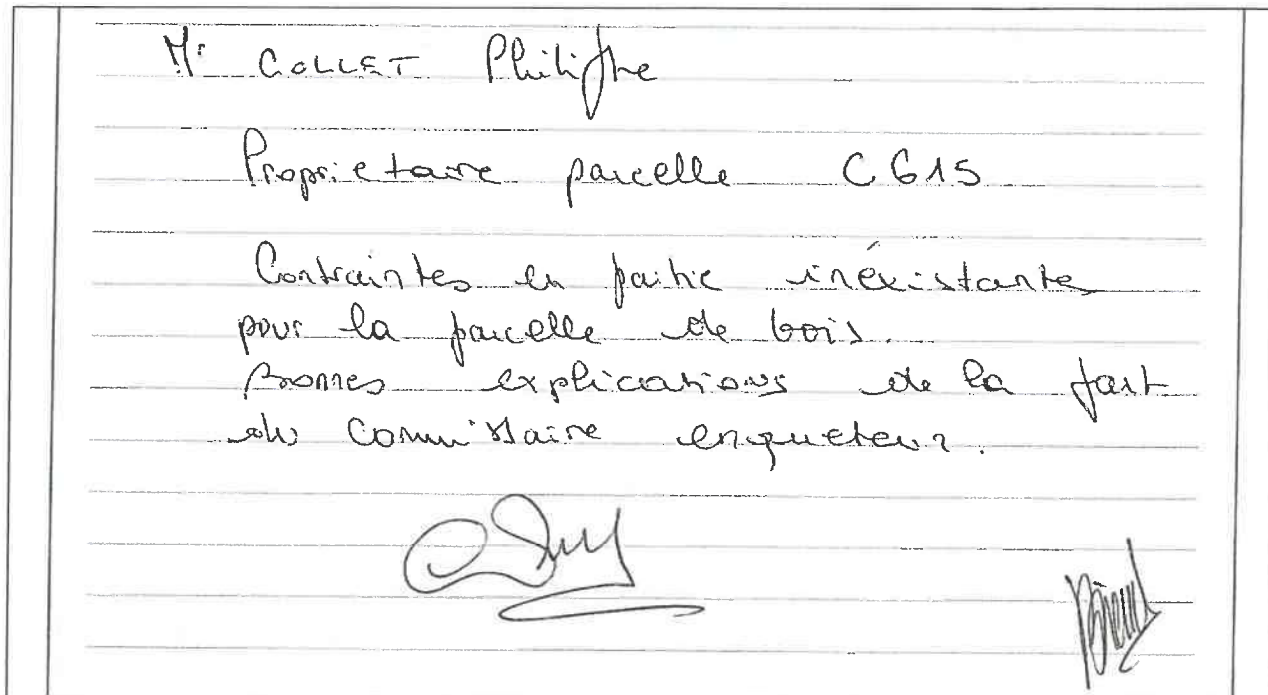 Mr COLLET Philippe
Proprietaire parcelle C615
Contraintes en partie inéxistantes
pour la parcelle de bois.
Bonnes explications de la part
du Commissaire enqueteur.